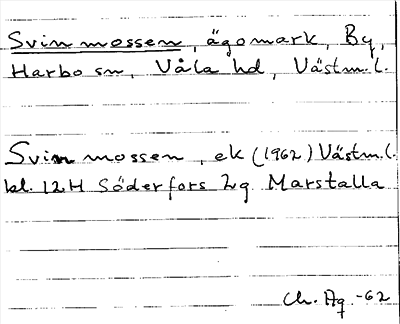 Svinmossen, ägomark, By,
Harbo sn, Våla hd, Västm.l.
Svinmossen, ek (1962) Västm.l.
bl. 12H Söderfors 2g Marstalla
Ch. Ag. -62